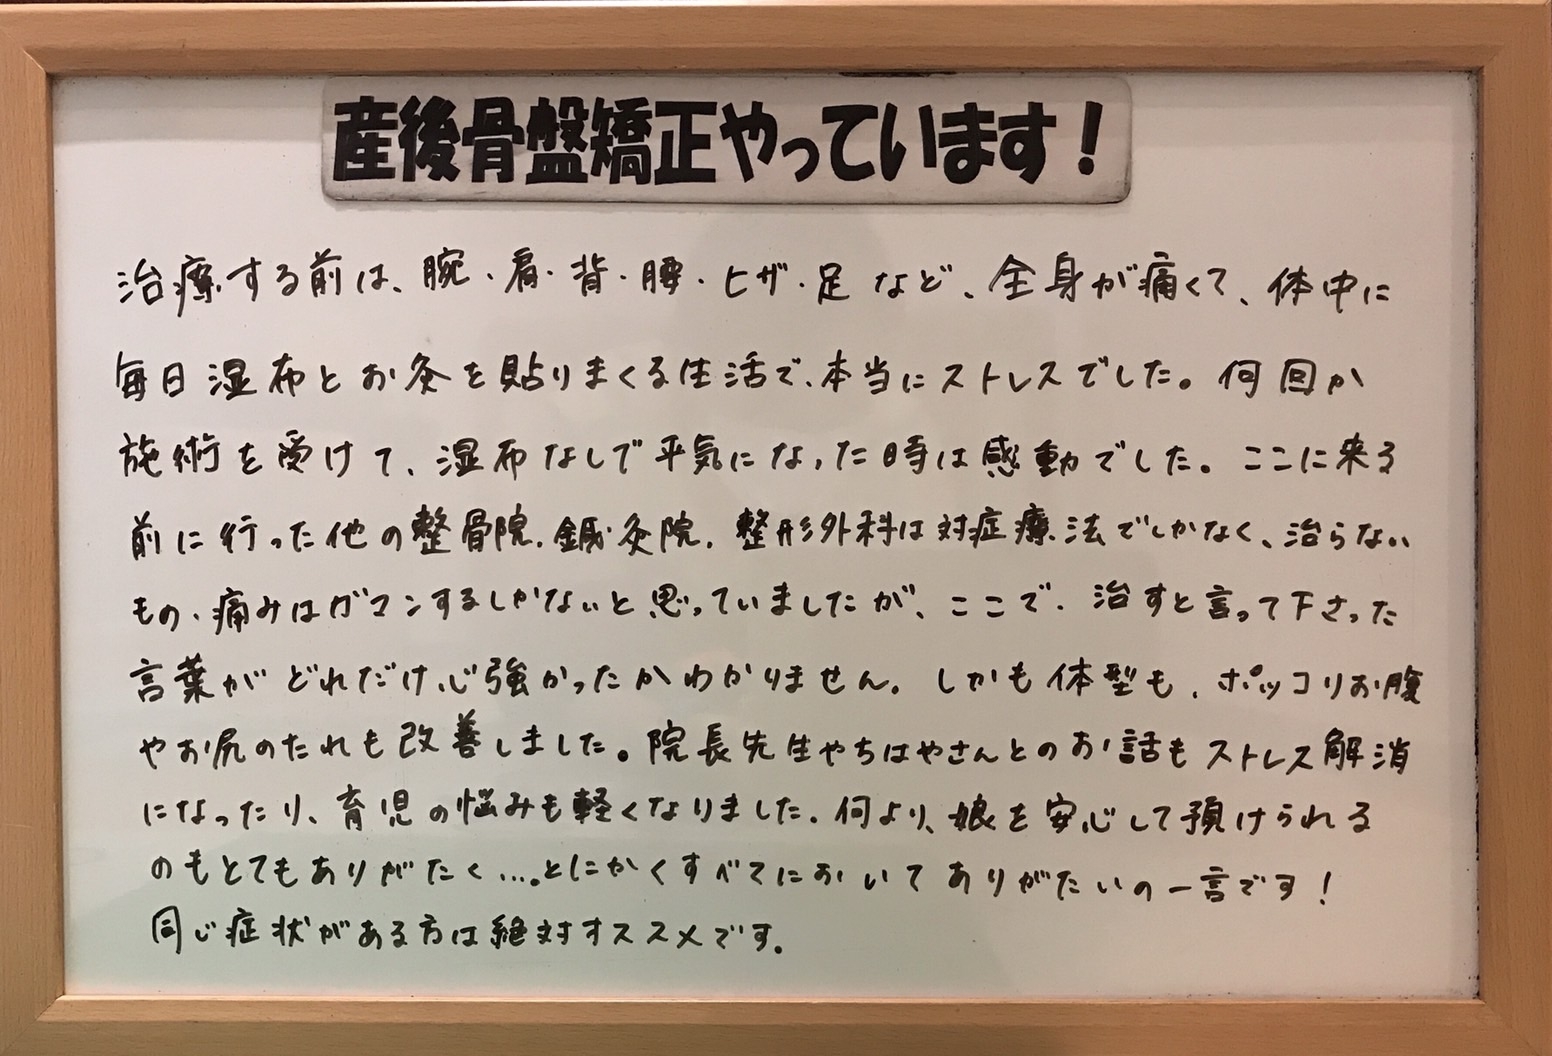 産後骨盤矯正やっています！
治療する前は、腕・肩・背・腰・ヒザ・足など、全身が痛くて、体中に
毎日湿布とお灸を貼りまくる生活で、本当にストレスでした。何回か
施術を受けて、湿布なしで平気になった時は感動でした。ここに来る
前に行った他の整骨院、鍼灸院、整形外科は対症療法でしかなく、治らない
もの、痛みはガマンするしかないと思っていましたが、ここで、治すと言って下さった
言葉がどれだけ心強かったかわかりません。しかも体型も、ポッコリお腹
やお尻のたれも改善しました。院長先生やちはやさんとのお話もストレス解消
になったり、育児の悩みも軽くなりました。何より、娘を安心して預けられる
のもとてもありがたく…。とにかくすべてにおいてありがたいの一言です！
同じ症状がある方は絶対オススメです。